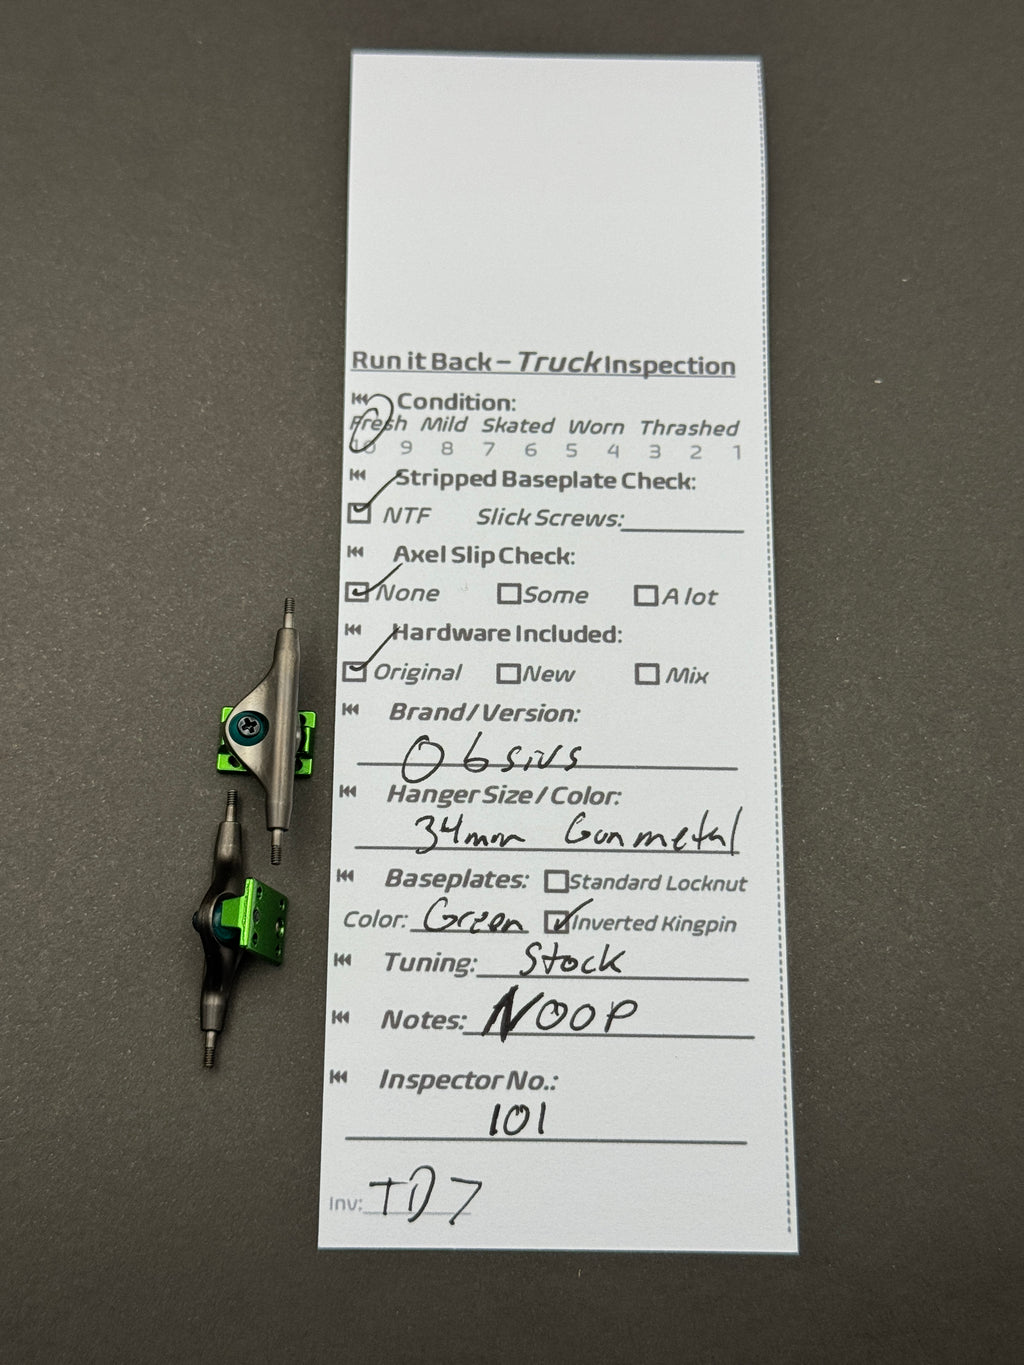 Run it Back – Truck Inspection
Condition:
Fresh Mild Skated Worn Thrashed
10 9 8 7 6 5 4 3 2 1
Stripped Baseplate Check:
NTF Slick Screws:
Axel Slip Check:
None Some A lot
Hardware Included:
Original New Mix
Brand/Version:
Obsivs
Hanger Size/Color:
34mm Gunmetal
Baseplates: Standard Locknut
Color: Green Inverted Kingpin
Tuning: Stock
Notes: NOOP
Inspector No.:
101
Inv: TD7